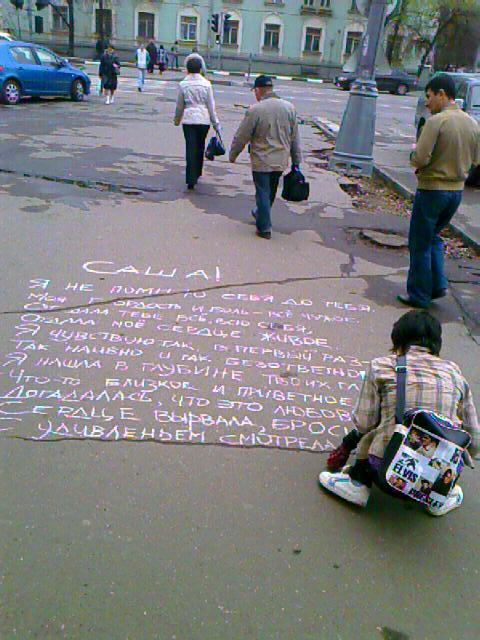 САША!
Я НЕ ПОМНЮ СЕБЯ ДО ТЕБЯ.
МОЯ ГОРДОСТЬ И БОЛЬ - ВСЁ ЧУЖОЕ.
ОТДАЛА ТЕБЕ ВСЮ СЕБЯ,
ОТДАЛА МОЁ СЕРДЦЕ ЖИВОЕ.
Я ЧУВСТВУЮ ТАК, В ПЕРВЫЙ РАЗ-
ТАК НАИВНО И ТАК БЕЗОТВЕТНО
Я НАШЛА В ГЛУБИНЕ ТВОИХ ГЛА
ЧТО-ТО БЛИЗКОЕ И ПРИВЕТНОЕ
ДОГАДАЛАСЬ, ЧТО ЭТО ЛЮБОВЬ
СЕРДЦЕ ВЫРВАЛА, БРОСИ
С УДИВЛЕНЬЕМ СМОТРЕЛА
ELVIS